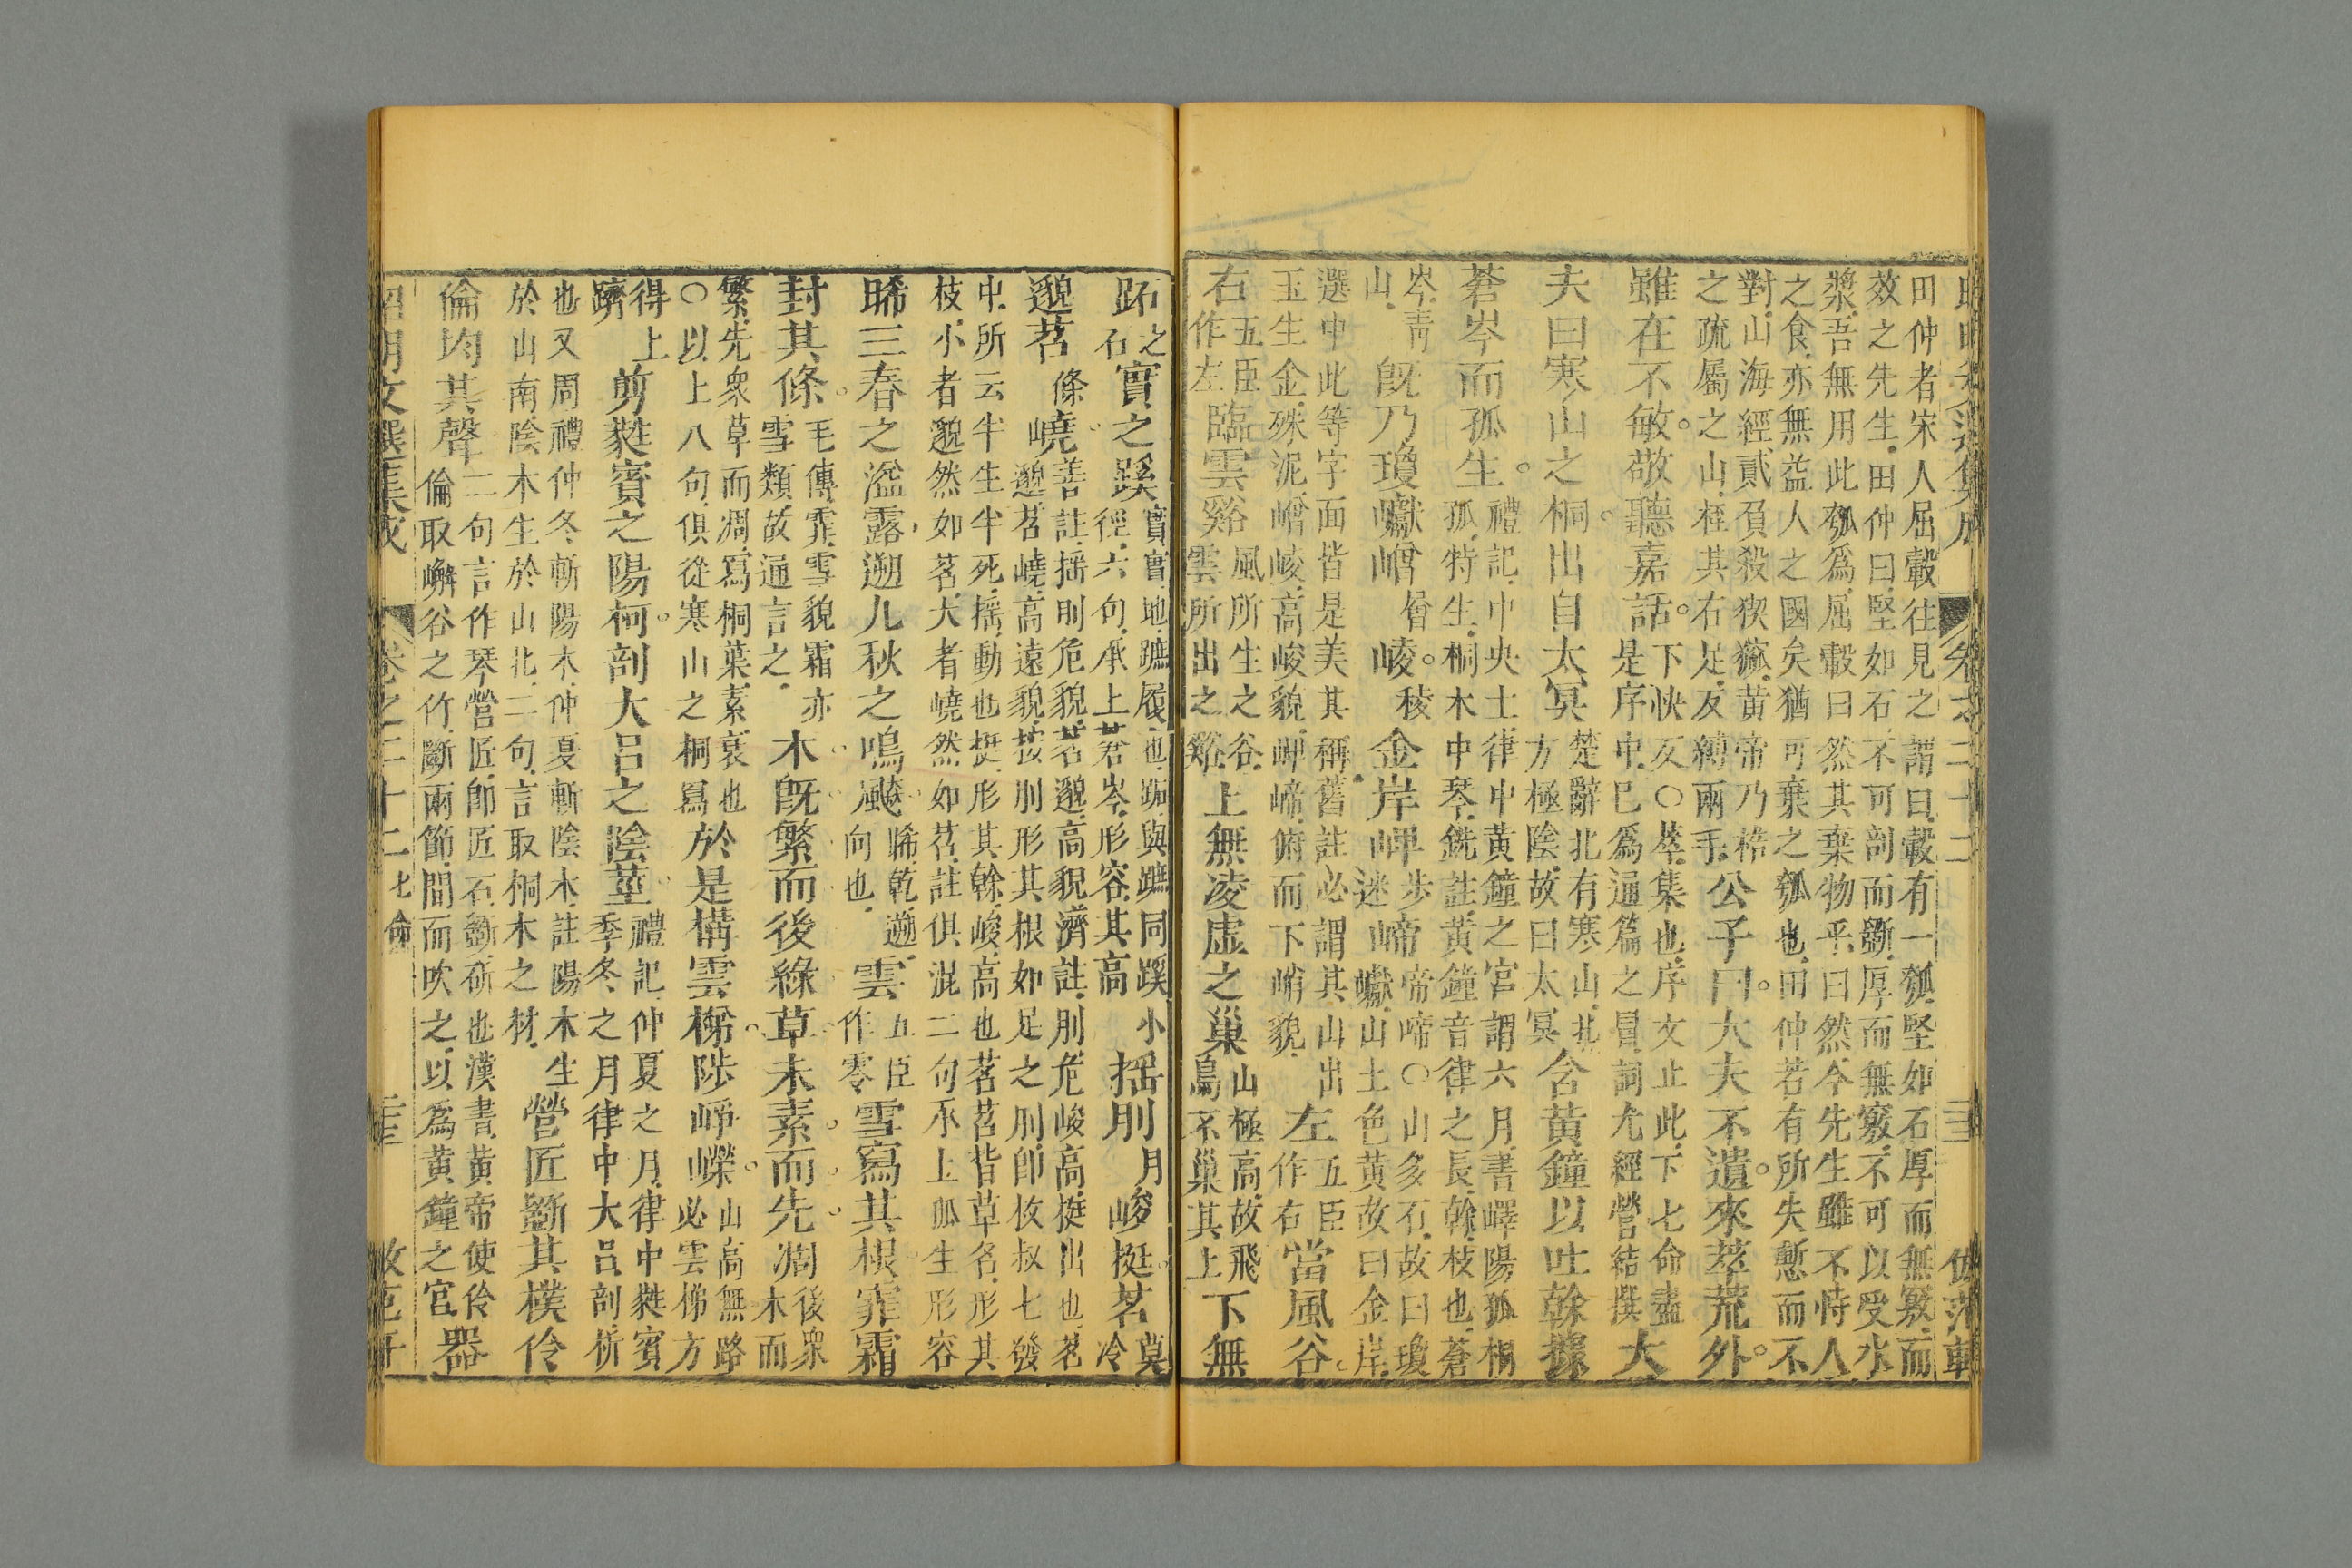 田仲者宋人屈轂往見之謂曰轂有一瓠堅如石厚而無竅而
效之先生田仲曰堅如石不可剖而斷厚而無竅不可以受水
漿吾無用此瓠爲屈轂曰然其棄物乎曰然今先生雖不恃人
之食亦無益人之國矣猶可棄之瓠也田仲若有所失慙而不
對山海經貳負殺猰㺄黃帝乃梏
之疏屬之山桎其右足反縛兩手
公子曰大夫不遺來萃荒外
雖在不敏敬聽嘉話
下怏反〇萃集也序文止此下七命盡
是序中已爲通篇之冒詞尤經營結撰
大
夫曰寒山之桐出自太冥
楚辭北有寒山北
方極陰故曰太冥
含黃鐘以吐榦據
蒼岑而孤生
禮記中央土律中黃鐘之宮謂六月書嶧陽孤桐
孤特生桐木中琴銑註黃鐘音律之長榦枝也蒼
岑青
山
旣乃瓊巘嶒
層
崚
稜
金岸岬
步
迷
崹
帝啼〇山多石故曰瓊
巘山土色黃故曰金岸
選中此等字面皆是美其稱舊註必謂其山出
玉生金殊泥嶒崚高峻貌岬崹俯而下峭貌
左
五臣
作右
當風谷
右
五臣
作左
臨雲谿
風所生之谷
雲所出之谿
上無凌虛之巢
山極高故飛
鳥不巢其上
下無
跖
之
石
實之蹊
實實地蹠履也跖與蹠同蹊小
徑六句承上蒼岑形容其高
揺刖
月
峻挺茗
莫
冷
邈苕
條
嶢
善註揺刖危貌茗邈高貌濟註刖危峻高挺出也茗
邈苕嶢高遠貌按刖形其根如足之刖卽枚叔七發
中所云半生半死揺動也挺形其榦峻高也茗苕皆草名形其
枝小者邈然如茗大者嶢然如苕註俱混二句承上孤生形容
晞三春之溢露遡九秋之鳴飈
晞乾遡
向也
雲
五臣
作零
雪寫其根霏霜
封其條
毛傳霏雪貌霜亦
雪類故通言之
木旣繁而後綠草未素而先凋
後衆
木而
繁先衆草而凋寫桐葉素衰也
〇以上八句俱從寒山之桐寫
於是構雲梯陟崢嶸
山高無路
必雲梯方
得上
躋
剪蕤賓之陽柯剖大呂之陰莖
禮記仲夏之月律中蕤賓
季冬之月律中大呂剖析
也又周禮仲冬斬陽木仲夏斬陰木註陽木生
於山南陰木生於山北二句言取桐木之材
營匠斵其樸伶
倫均其聲
二句言作琴營匠卽匠石斵斫也漢書黃帝使伶
倫取嶰谷之竹斷兩節間而吹之以爲黃鐘之宮
器
昭明文選集成
卷之二十二
七命